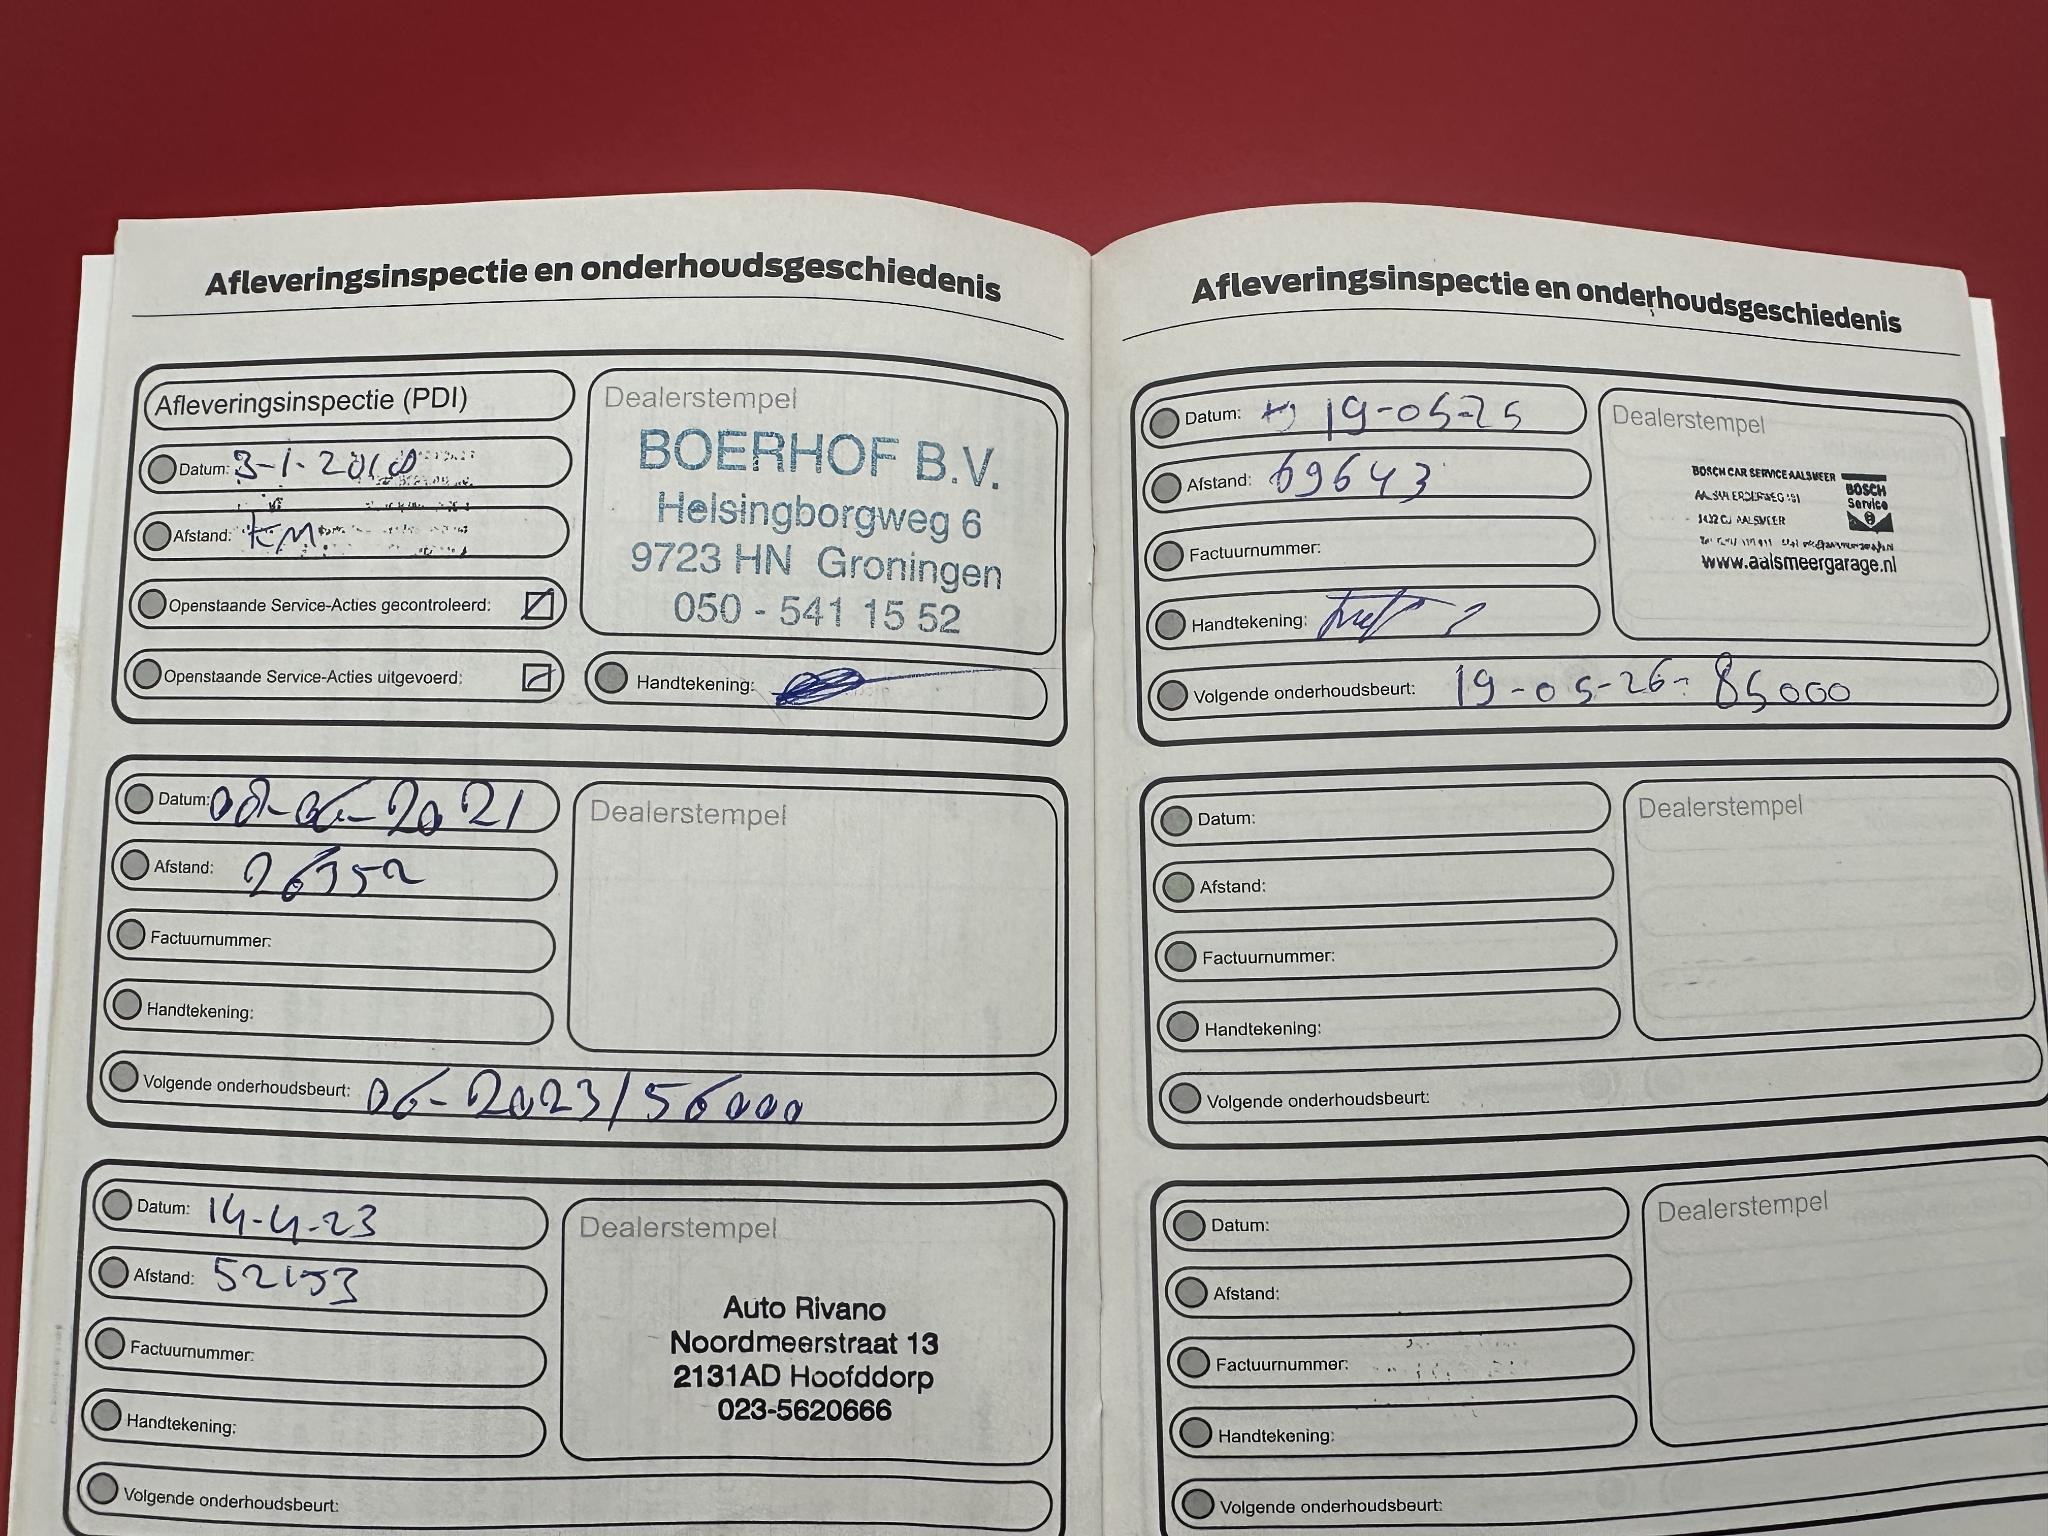 Afleveringsinspectie en onderhoudsgeschiedenis
Afleveringsinspectie (PDI)
Datum: 3-1-2018
Afstand: KM.
Openstaande Service-Acties gecontroleerd:
Openstaande Service-Acties uitgevoerd:
Dealerstempel
BOERHOF B.V.
Helsingborgweg 6
9723 HN Groningen
050 - 541 15 52
Handtekening:
Datum: 08-06-2021
Afstand: 26352
Factuurnummer:
Handtekening:
Dealerstempel
Volgende onderhoudsbeurt: 06-2023/56000
Datum: 14-4-23
Afstand: 52153
Factuurnummer:
Handtekening:
Dealerstempel
Auto Rivano
Noordmeerstraat 13
2131AD Hoofddorp
023-5620666
Volgende onderhoudsbeurt:
Afleveringsinspectie en onderhoudsgeschiedenis
Datum: 19-05-25
Afstand: 69643
Factuurnummer:
Handtekening:
Dealerstempel
BOSCH CAR SERVICE AALSMEER
BOSCH
Service
1432 CJ AALSMEER
www.aalsmeergarage.nl
Volgende onderhoudsbeurt: 19-05-26- 85000
Datum:
Afstand:
Factuurnummer:
Handtekening:
Dealerstempel
Volgende onderhoudsbeurt:
Datum:
Afstand:
Factuurnummer:
Handtekening:
Dealerstempel
Volgende onderhoudsbeurt: